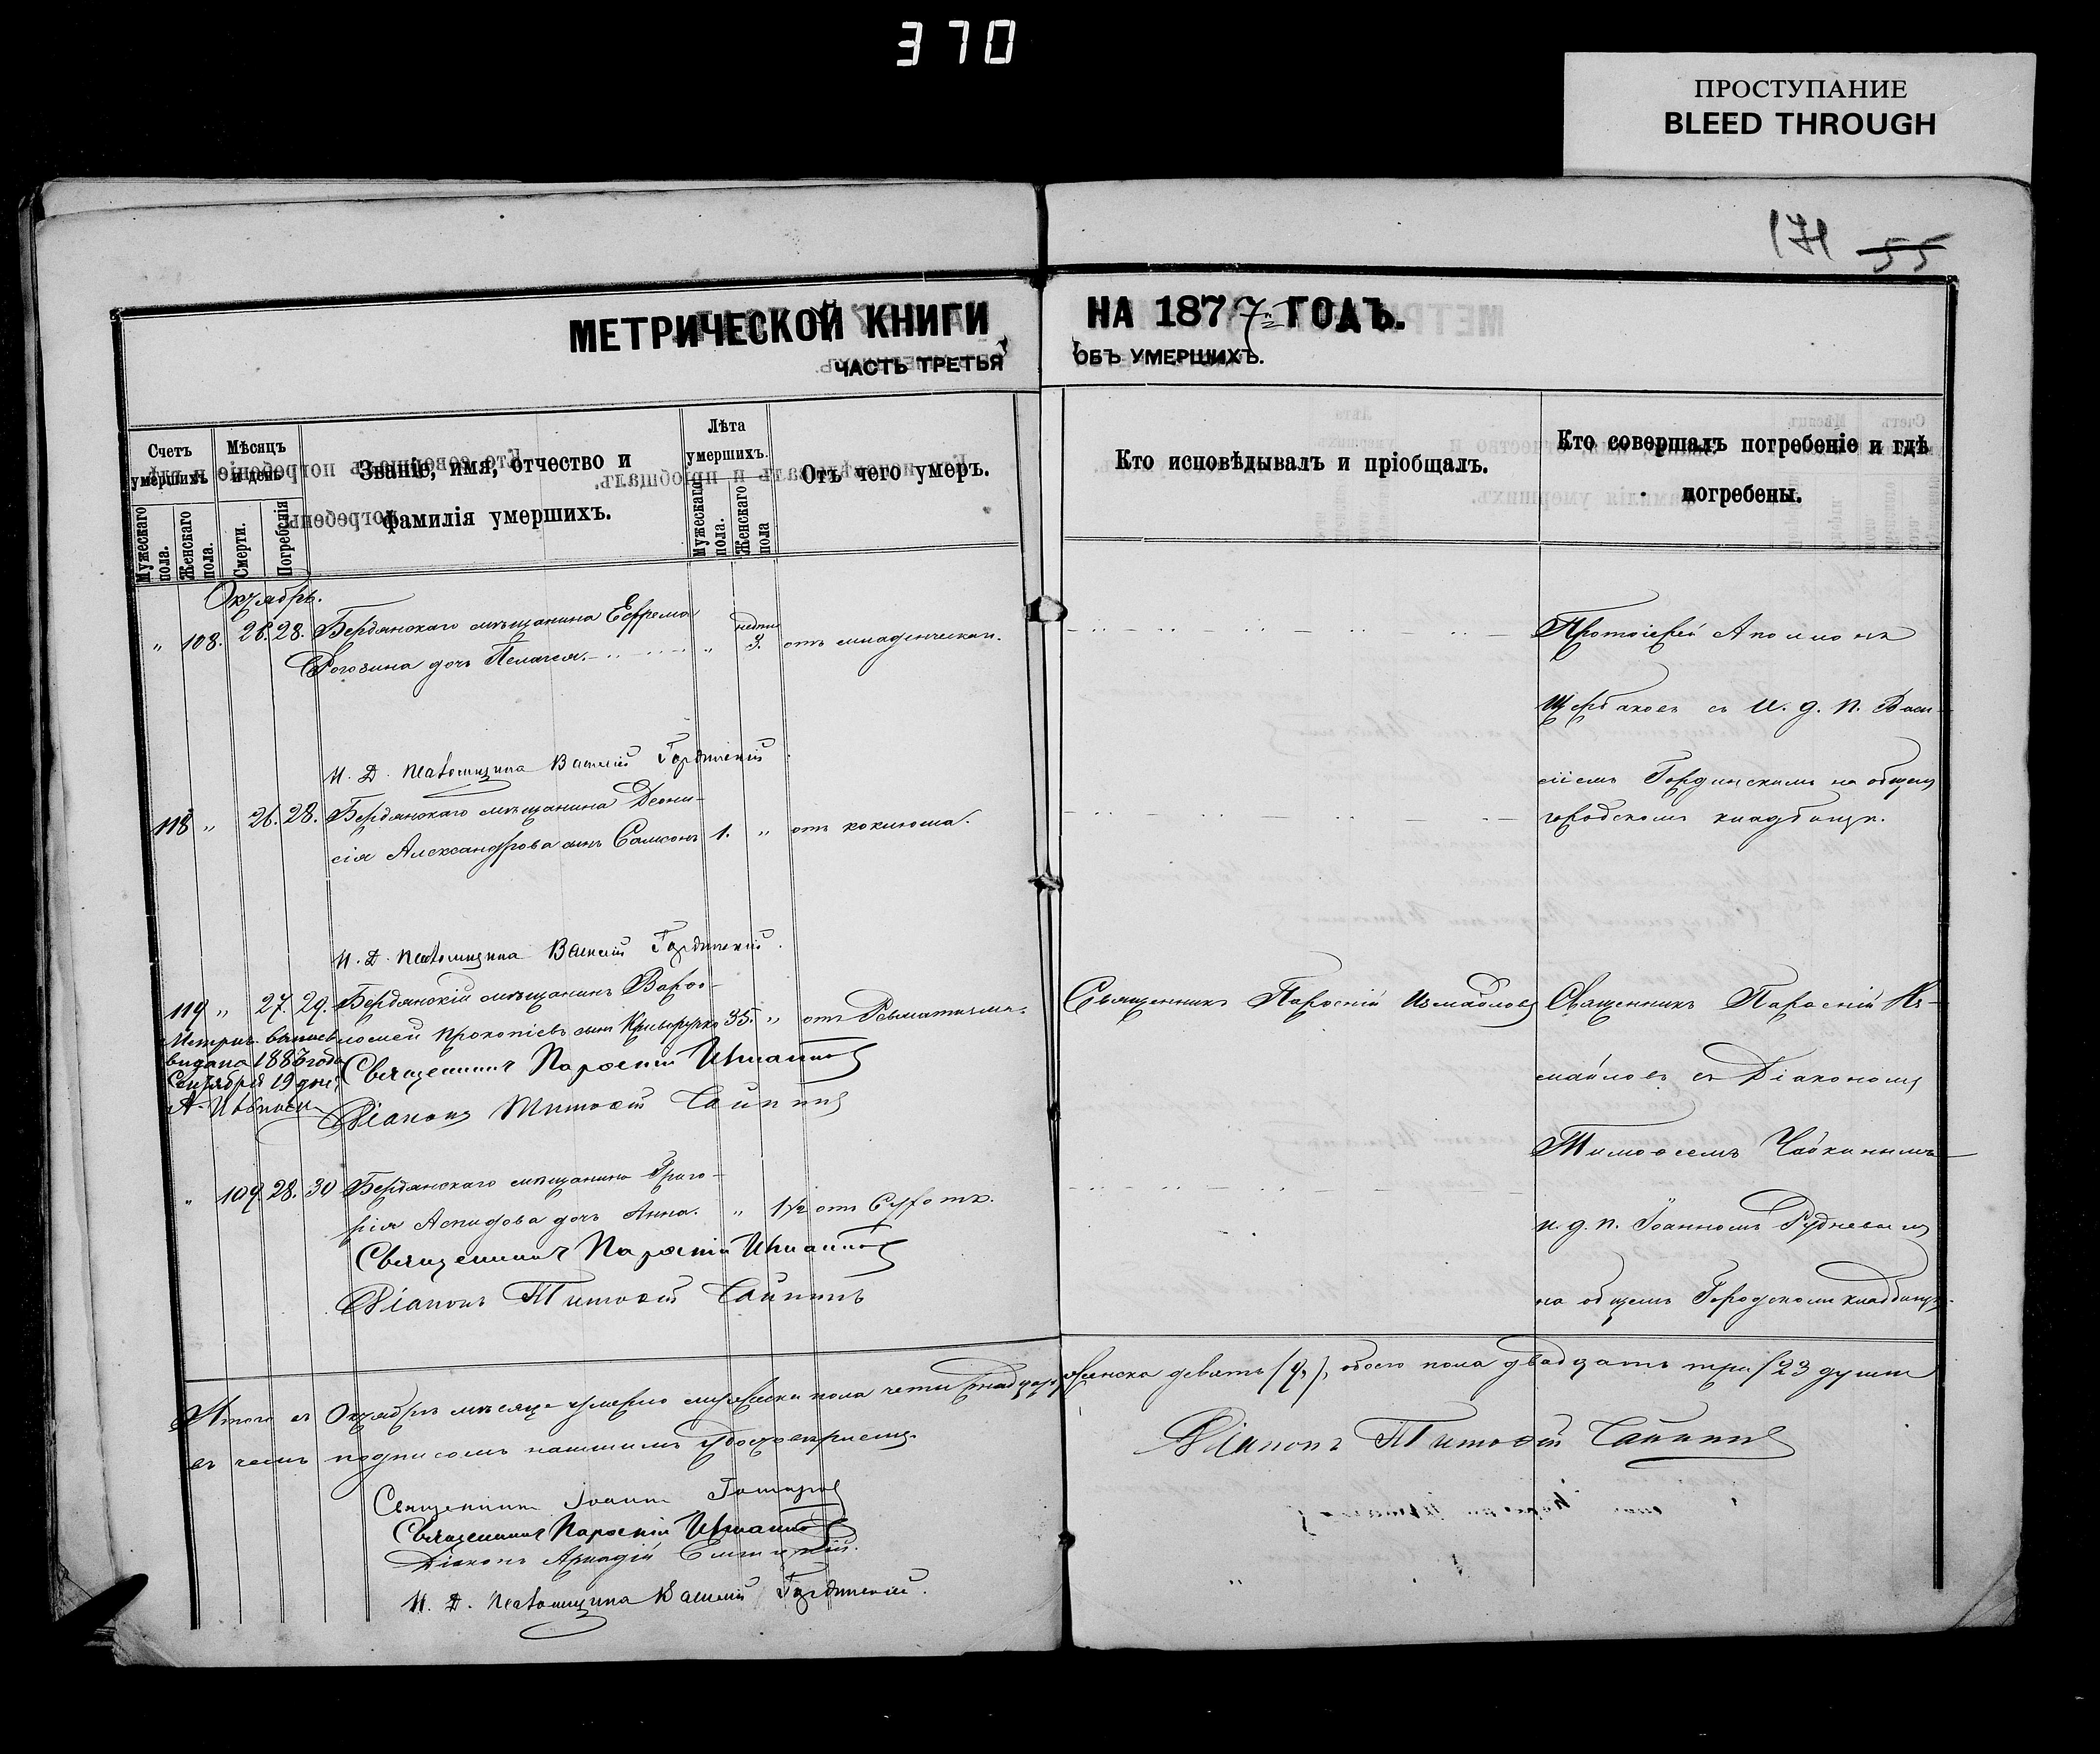 370
ПРОСТУПАНИЕ
BLEED THROUGH
171 55
МЕТРИЧЕСКОЙ КНИГИ НА 1877 ГОДЪ.
ЧАСТЬ ТРЕТЬЯ ОБЪ УМЕРШИХЪ.
Счетъ умершихъ
Мужескаго пола.
Женскаго пола.
Мѣсяцъ и день
Смерти.
Погребенія
Званіе, имя, отчество и
фамилія умершихъ.
Лѣта умершихъ.
Мужескаго пола.
Женскаго пола
Отъ чего умеръ.
Кто исповѣдывалъ и пріобщалъ.
Кто совершалъ погребеніе и гдѣ
погребены.
Октябрь.
„ 108. 26. 28. Бердянскаго мѣщанина Ефрема
Рогозина дочь Пелагея. „ 3. отъ младенческой.
Протоіерей Аполлонъ
Щербаковъ съ И. д. п. Васи-
ліемъ Гординскимъ на общем
городскомъ кладбищѣ.
И. Д. Псаломщика Василій Гординскій
118 „ 26. 28. Бердянскаго мѣщанина Діони-
сія Александрова сынъ Самсонъ 1. „ отъ коклюша.
И. Д. Псаломщика Василій Гординскій.
119 „ 27. 29. Бердянскій мѣщанинъ Варѳо-
ломей Прокопіевъ сынъ Криворучко 35. „ отъ Ревматизма.
Священникъ Парѳеній Измайловъ
Священникъ Парѳеній Из-
майловъ съ Діакономъ
Тимоѳеемъ Чайкинымъ
и. д. п. Іоанномъ Рудневымъ
на общемъ Городскомъ кладбищѣ.
Метрич. выпись
выдана 1887 года
19 дня
Священникъ Парѳеній Измайловъ
Діаконъ Тимоѳей Чайкинъ
„ 109. 28. 30 Бердянскаго мѣщанина Григо-
рія дочь Анна. „ 1½ отъ Сухотки.
Священникъ Парѳеній Измайловъ
Діаконъ Тимоѳей Чайкинъ
Итого въ Октябрѣ мѣсяцѣ умерло мужеска пола четырнадцать, женска девять (9), обоего пола двадцать три (23 души
въ чемъ подписомъ нашимъ удостовѣряемъ.
Діаконъ Тимоѳей Чайкинъ
Священникъ Іоаннъ
Священникъ Парѳеній Измайловъ
Діаконъ Аркадій
И. Д. Псаломщика Василій Гординскій.